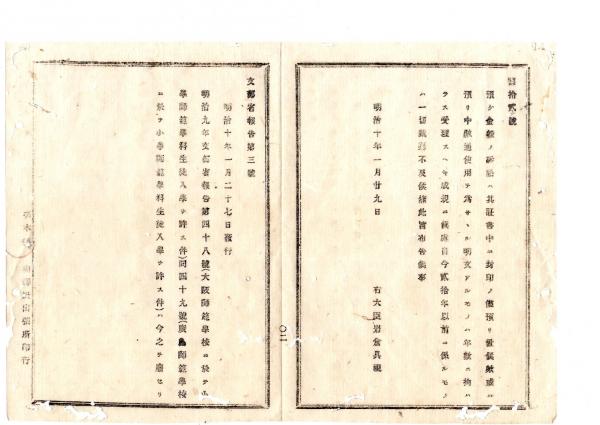 第拾貳號
預ケ金穀ノ訴訟ハ其証書中ニ封印ノ儘預リ置候歟或ハ
預リ中融通使用ヲ爲サヽル明文アルモノハ年數ニ拘ハ
ラス受理スヘキ成規ニ候處自今貳拾年以前ニ係ルモノ
ハ一切裁判不及候條此旨布告候事
明治十年一月廿九日
右大臣岩倉具視
文部省報告第三號
明治十年一月二十七日發行
明治九年文部省報告第四十八號(大阪師範學校ニ於テ小
學師範學科生徒入學ヲ許ス件)同四十九號(廣島師範學校
ニ於テ小學師範學科生徒入學ヲ許ス件)ハ今之ヲ廢セリ
出張所印行